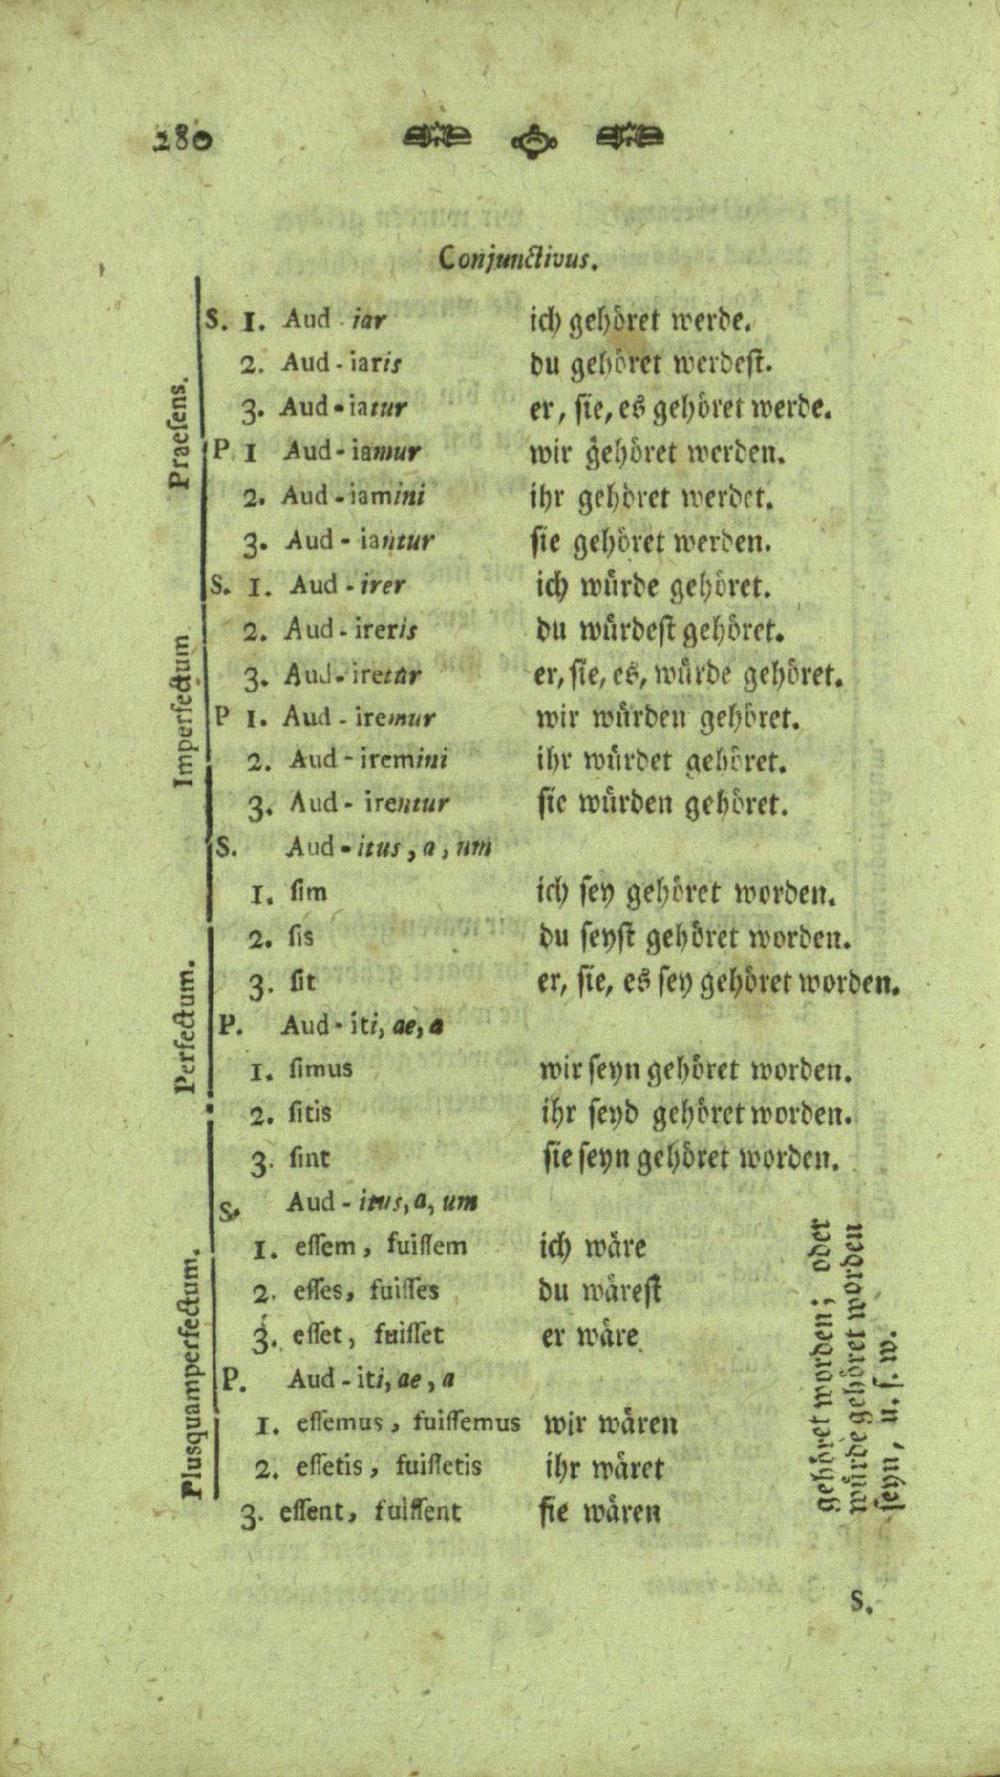 280
Conjunctivus.
Praesens.
S. 1. Aud-iar ich gehöret werde.
2. Aud-iaris du gehöret werdest.
3. Aud-iatur er, sie, es gehöret werde.
P. 1 Aud-iamur wir gehöret werden.
2. Aud-iamini ihr gehöret werdet.
3. Aud-iantur sie gehöret werden.
Imperfectum
S. 1. Aud-irer ich würde gehöret.
2. Aud-ireris du würdest gehöret.
3. Aud-iretur er, sie, es, würde gehöret.
P 1. Aud-iremur wir würden gehöret.
2. Aud-iremini ihr würdet gehöret.
3. Aud-irentur sie würden gehöret.
Perfectum.
S. Aud-itus, a, um
1. ſim ich ſey gehöret worden.
2. ſis du ſeyſt gehöret worden.
3. ſit er, ſie, es ſey gehöret worden.
P. Aud-iti, ae, a
1. ſimus wir ſeyn gehöret worden.
2. ſitis ihr ſeyd gehöret worden.
3. ſint ſie ſeyn gehöret worden.
Plusquamperfectum.
S. Aud-itus, a, um
1. eſſem, fuiſſem ich wäre
2. eſſes, fuiſſes du wäreſt
3. eſſet, fuiſſet er wäre
P. Aud-iti, ae, a
1. eſſemus, fuiſſemus wir wären
2. eſſetis, fuiſſetis ihr wäret
3. eſſent, fuiſſent ſie wären
gehöret worden; oder
würde gehöret worden
ſeyn, u. ſ. w.
S.